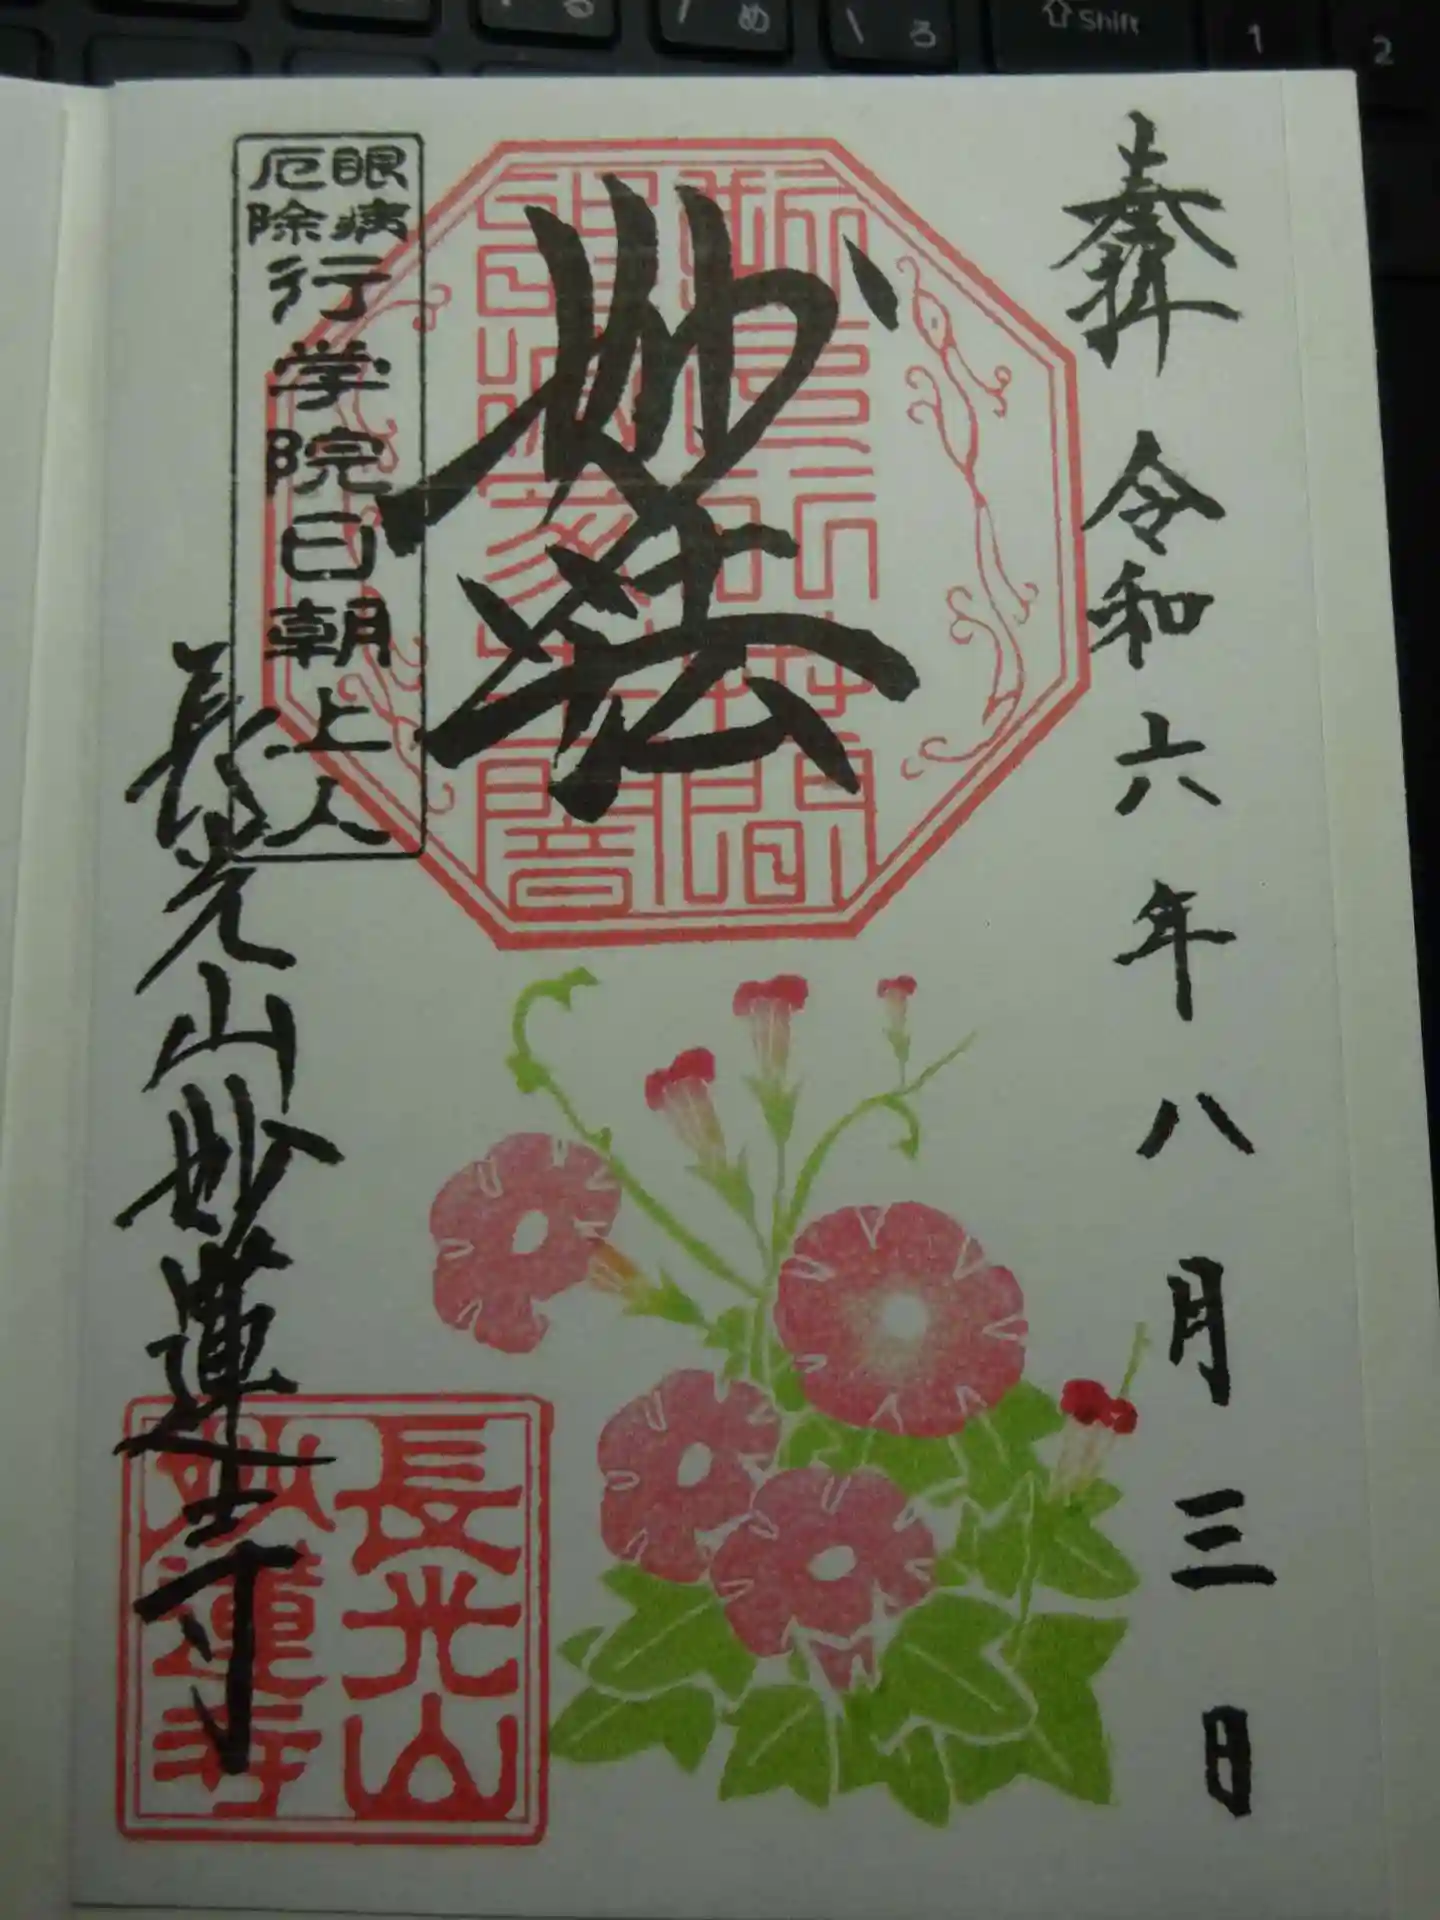 る
/ め
\ ろ
⇧ Shift
1
2
奉拝 令和六年八月三日
斯人行世間
能滅衆生闇
妙法
眼病
厄除
行学院日朝上人
長光山妙蓮寺
長光山
妙蓮寺